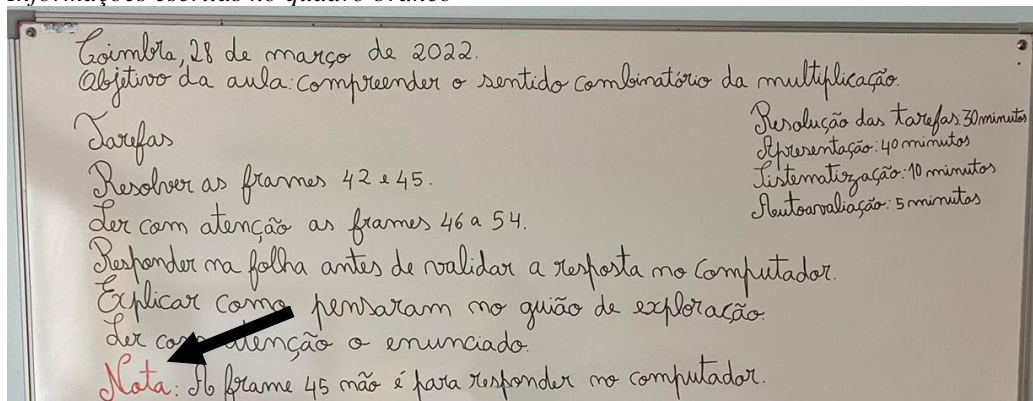 Informações escritas no quadro branco
Coimbra, 28 de março de 2022.
Objetivo da aula: compreender o sentido combinatório da multiplicação.
Tarefas
Resolver as frames 42 e 45.
Ler com atenção as frames 46 a 54.
Responder na folha antes de validar a resposta no computador.
Explicar como pensaram no guião de exploração.
Ler com atenção o enunciado.
Nota: A frame 45 não é para responder no computador.
Resolução das tarefas: 30 minutos
Apresentação: 40 minutos
Sistematização: 10 minutos
Autoavaliação: 5 minutos